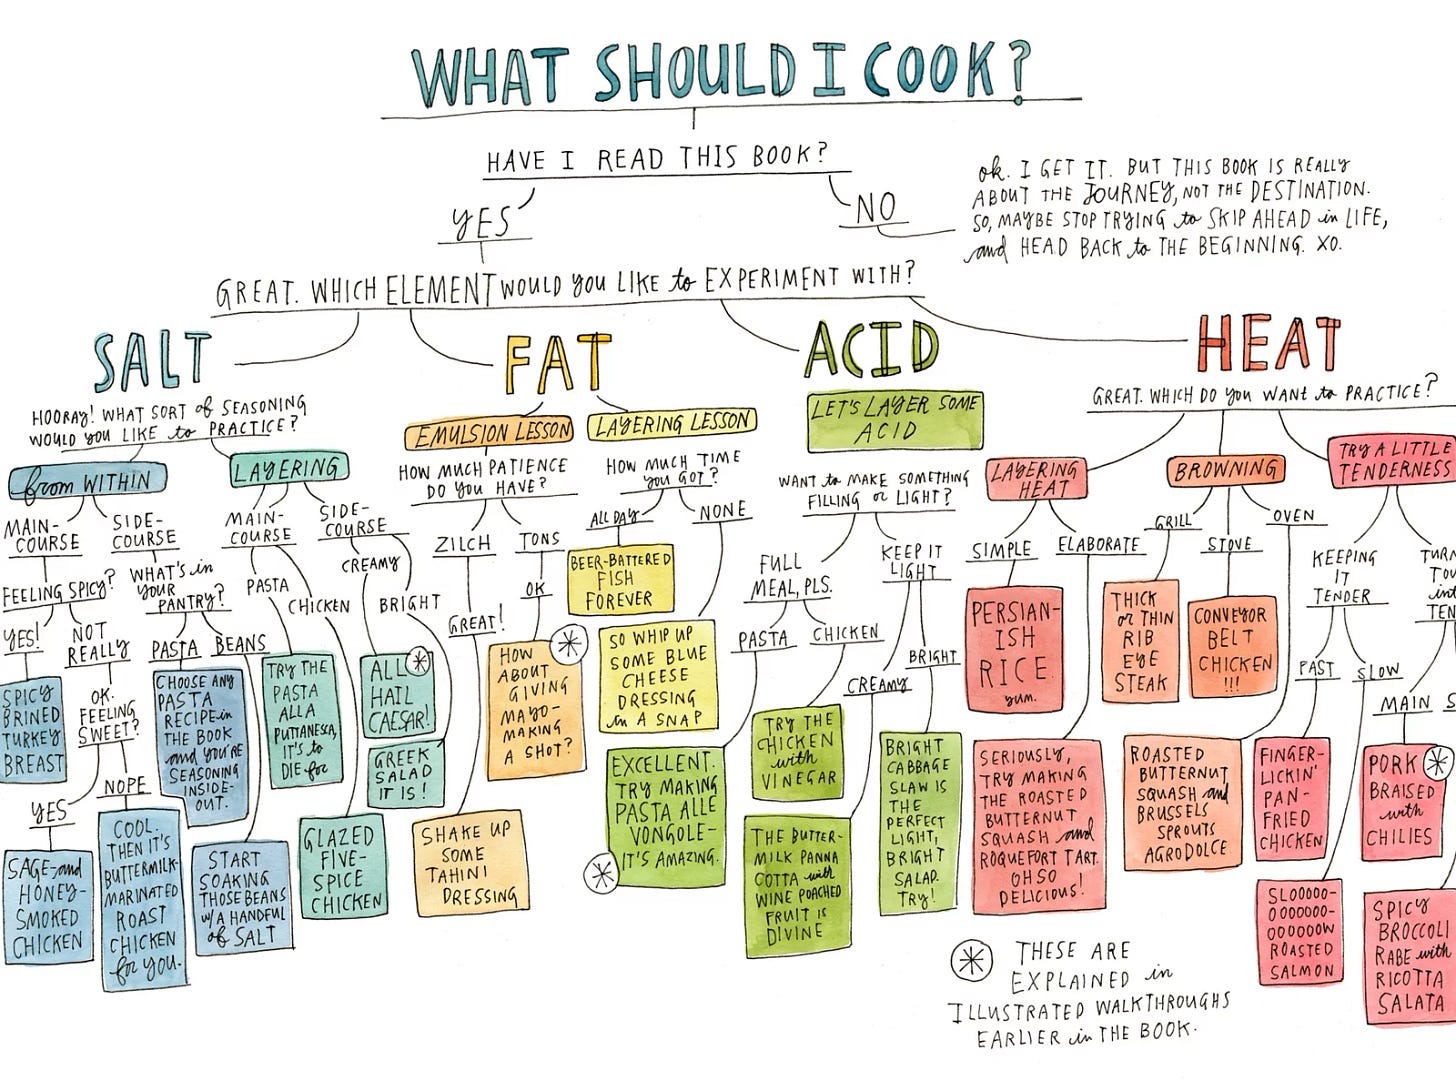 WHAT SHOULD I COOK?
HAVE I READ THIS BOOK?
YES
NO
ok. I GET IT. BUT THIS BOOK IS REALLY
ABOUT THE JOURNEY, NOT THE DESTINATION.
SO, MAYBE STOP TRYING to SKIP AHEAD in LIFE,
and HEAD BACK to THE BEGINNING. XO.
GREAT. WHICH ELEMENT WOULD YOU LIKE to EXPERIMENT WITH?
SALT
HOORAY! WHAT SORT of SEASONING
WOULD YOU LIKE to PRACTICE?
from WITHIN
MAIN-
COURSE
FEELING SPICY?
YES!
SPICY
BRINED
TURKEY
BREAST
NOT
REALLY
OK.
FEELING
SWEET?
YES
SAGE-and
HONEY-
SMOKED
CHICKEN
NOPE
COOL.
THEN IT'S
BUTTERMILK-
MARINATED
ROAST
CHICKEN
for YOU.
SIDE-
COURSE
WHAT'S in
YOUR
PANTRY?
PASTA
CHOOSE ANY
PASTA
RECIPE in
THE BOOK
and YOU'RE
SEASONING
INSIDE-
OUT.
BEANS
START
SOAKING
THOSE BEANS
W/A HANDFUL
of SALT
LAYERING
MAIN-
COURSE
PASTA
TRY THE
PASTA
ALLA
PUTTANESCA,
IT'S to
DIE for
CHICKEN
GLAZED
FIVE-
SPICE
CHICKEN
SIDE-
COURSE
CREAMY
ALL
HAIL
CAESAR!
BRIGHT
GREEK
SALAD
IT IS!
FAT
EMULSION LESSON
HOW MUCH PATIENCE
DO YOU HAVE?
ZILCH
GREAT!
SHAKE UP
SOME
TAHINI
DRESSING
TONS
OK
HOW
ABOUT
GIVING
MAYO-
MAKING
A SHOT?
LAYERING LESSON
HOW MUCH TIME
YOU GOT?
ALL DAY
BEER-BATTERED
FISH
FOREVER
NONE
SO WHIP UP
SOME BLUE
CHEESE
DRESSING
in A SNAP
ACID
LET'S LAYER SOME
ACID
WANT to MAKE SOMETHING
FILLING or LIGHT?
FULL
MEAL, PLS.
PASTA
EXCELLENT.
TRY MAKING
PASTA ALLE
VONGOLE-
IT'S AMAZING.
CHICKEN
TRY THE
CHICKEN
with
VINEGAR
KEEP IT
LIGHT
CREAMY
THE BUTTER-
MILK PANNA
COTTA with
WINE POACHED
FRUIT IS
DIVINE
BRIGHT
BRIGHT
CABBAGE
SLAW IS
THE
PERFECT
LIGHT,
BRIGHT
SALAD.
TRY!
HEAT
GREAT. WHICH DO YOU WANT to PRACTICE?
LAYERING
HEAT
SIMPLE
PERSIAN-
ISH
RICE.
yum.
ELABORATE
SERIOUSLY,
TRY MAKING
THE ROASTED
BUTTERNUT
SQUASH and
ROQUEFORT TART.
OH SO
DELICIOUS!
BROWNING
GRILL
THICK
or THIN
RIB
EYE
STEAK
STOVE
CONVEYOR
BELT
CHICKEN
!!!
OVEN
ROASTED
BUTTERNUT
SQUASH and
BRUSSELS
SPROUTS
AGRODOLCE
TRY A LITTLE
TENDERNESS
KEEPING
IT
TENDER
FAST
FINGER-
LICKIN'
PAN-
FRIED
CHICKEN
SLOW
SLOOOOO-
OOOOOOO-
OOOOOOW
ROASTED
SALMON
TURN
TOU
int
TEN
MAIN
S
PORK
BRAISED
with
CHILIES
SPICY
BROCCOLI
RABE with
RICOTTA
SALATA
THESE ARE
EXPLAINED in
ILLUSTRATED WALKTHROUGHS
EARLIER in THE BOOK.